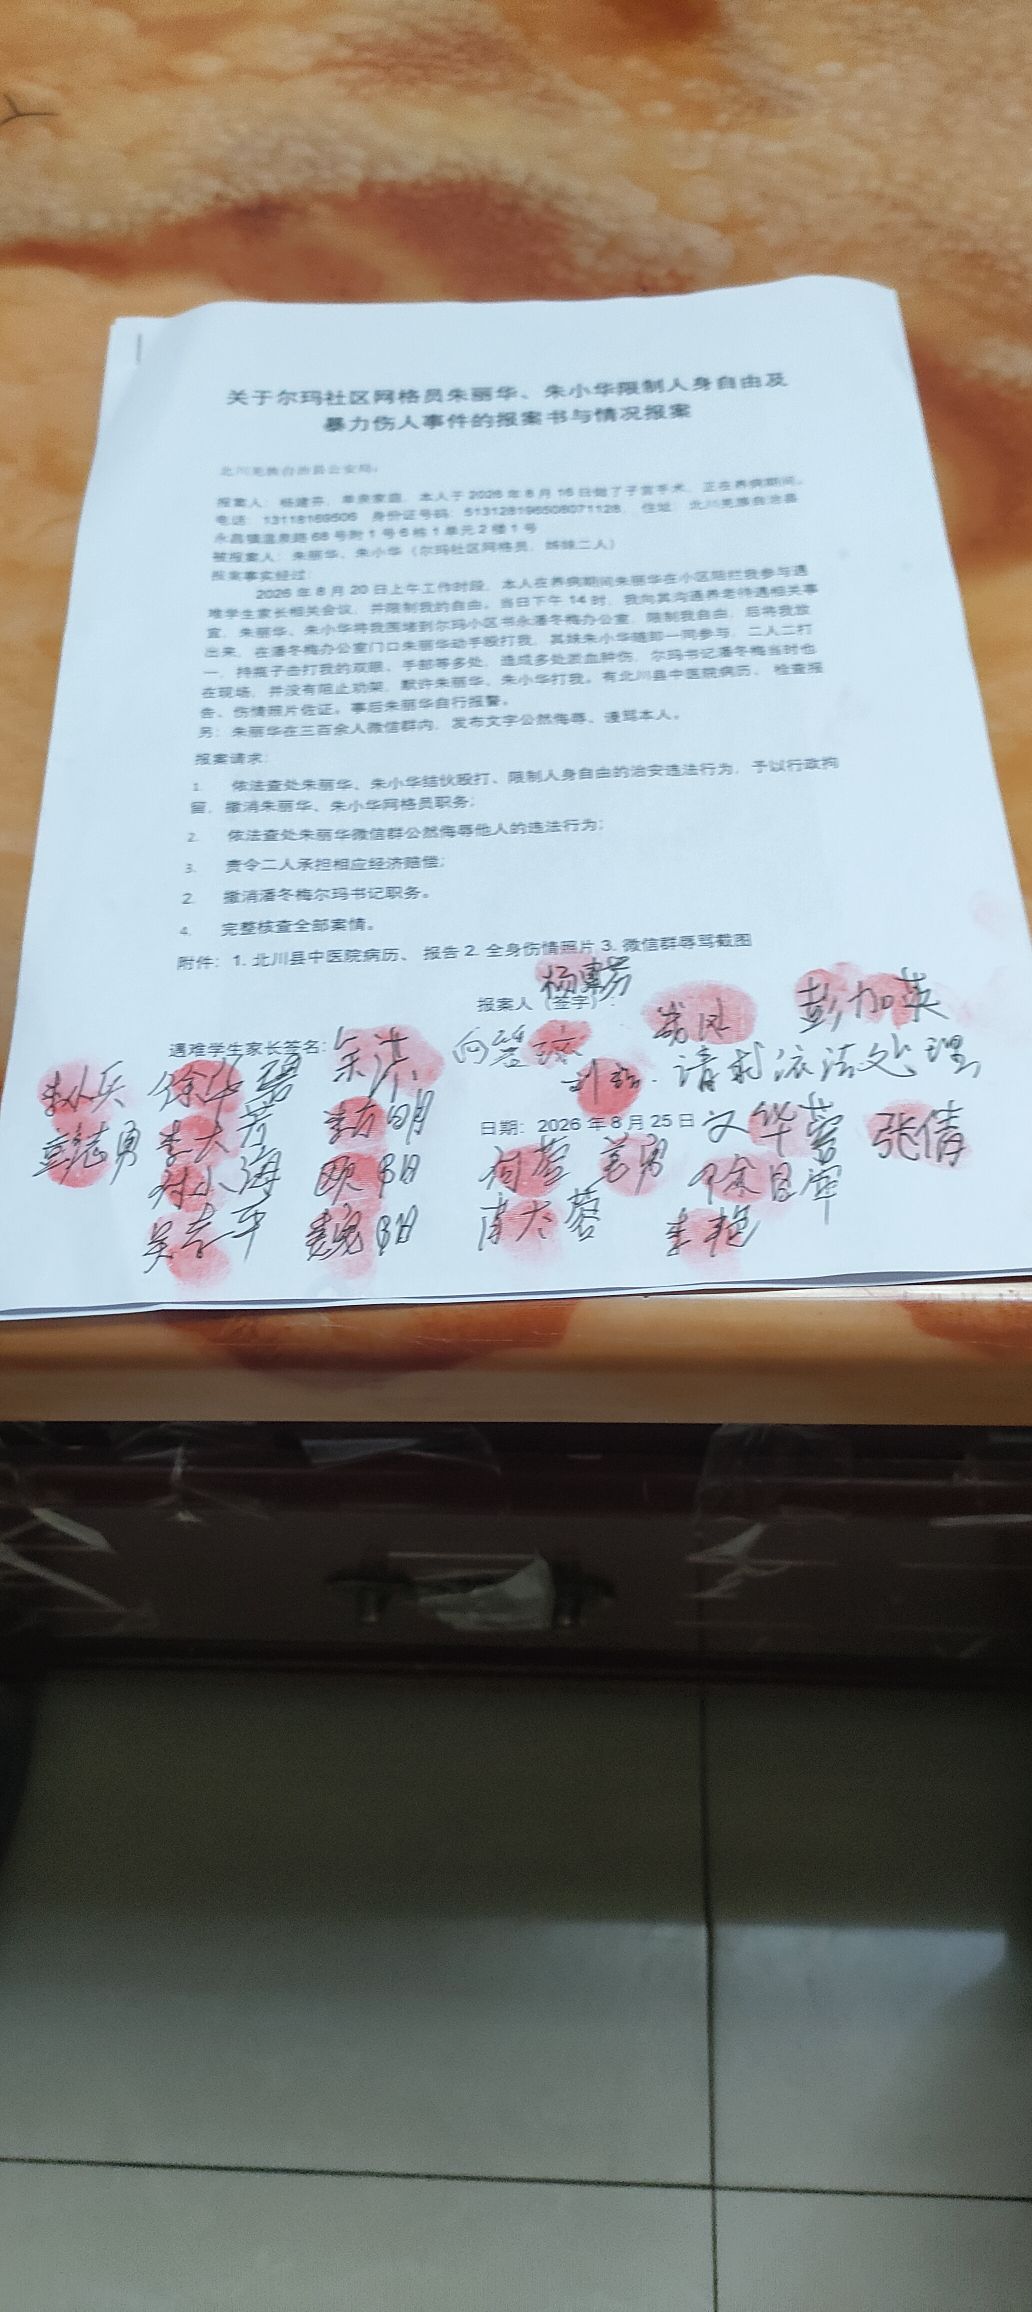 关于尔玛社区网格员朱丽华、朱小华限制人身自由及
暴力伤人事件的报案书与情况报案
北川羌族自治县公安局:
报案人: 杨建芬, 单亲家庭, 本人于2026年8月16日做了子宫手术, 正在养病期间。
电话: 13118169506 身份证号码: 513128196508071128, 住址: 北川羌族自治县
永昌镇温泉路68号附1号6栋1单元2楼1号
被报案人: 朱丽华、朱小华 (尔玛社区网格员, 姊妹二人)
报案事实经过:
2026年8月20日上午工作时段, 本人在养病期间朱丽华在小区阻拦我参与遇
难学生家长相关会议, 并限制我的自由。当日下午14时, 我向其沟通养老待遇相关事
宜, 朱丽华、朱小华将我围堵到尔玛小区书永潘冬梅办公室, 限制我自由, 后将我放
出来, 在潘冬梅办公室门口朱丽华动手殴打我, 其妹朱小华随即一同参与, 二人二打
一, 持瓶子击打我的双眼、手部等多处, 造成多处淤血肿伤, 尔玛书记潘冬梅当时也
在现场, 并没有阻止劝架, 默许朱丽华、朱小华打我。有北川县中医院病历、检查报
告、伤情照片佐证。事后朱丽华自行报警。
另: 朱丽华在三百余人微信群内, 发布文字公然侮辱、谩骂本人。
报案请求:
1. 依法查处朱丽华、朱小华结伙殴打、限制人身自由的治安违法行为, 予以行政拘
留, 撤消朱丽华、朱小华网格员职务;
2. 依法查处朱丽华微信群公然侮辱他人的违法行为;
3. 责令二人承担相应经济赔偿;
2. 撤消潘冬梅尔玛书记职务。
4. 完整核查全部案情。
附件: 1. 北川县中医院病历、 报告 2. 全身伤情照片 3. 微信群辱骂截图
报案人 (签字):
彭加英
遇难学生家长签名:
请求依法处理
日期: 2026年8月25日
文华蓉 张倩
李大芳 李方明
付小海 欧阳
何蓉 姜勇
徐昌军
魏阳
李艳